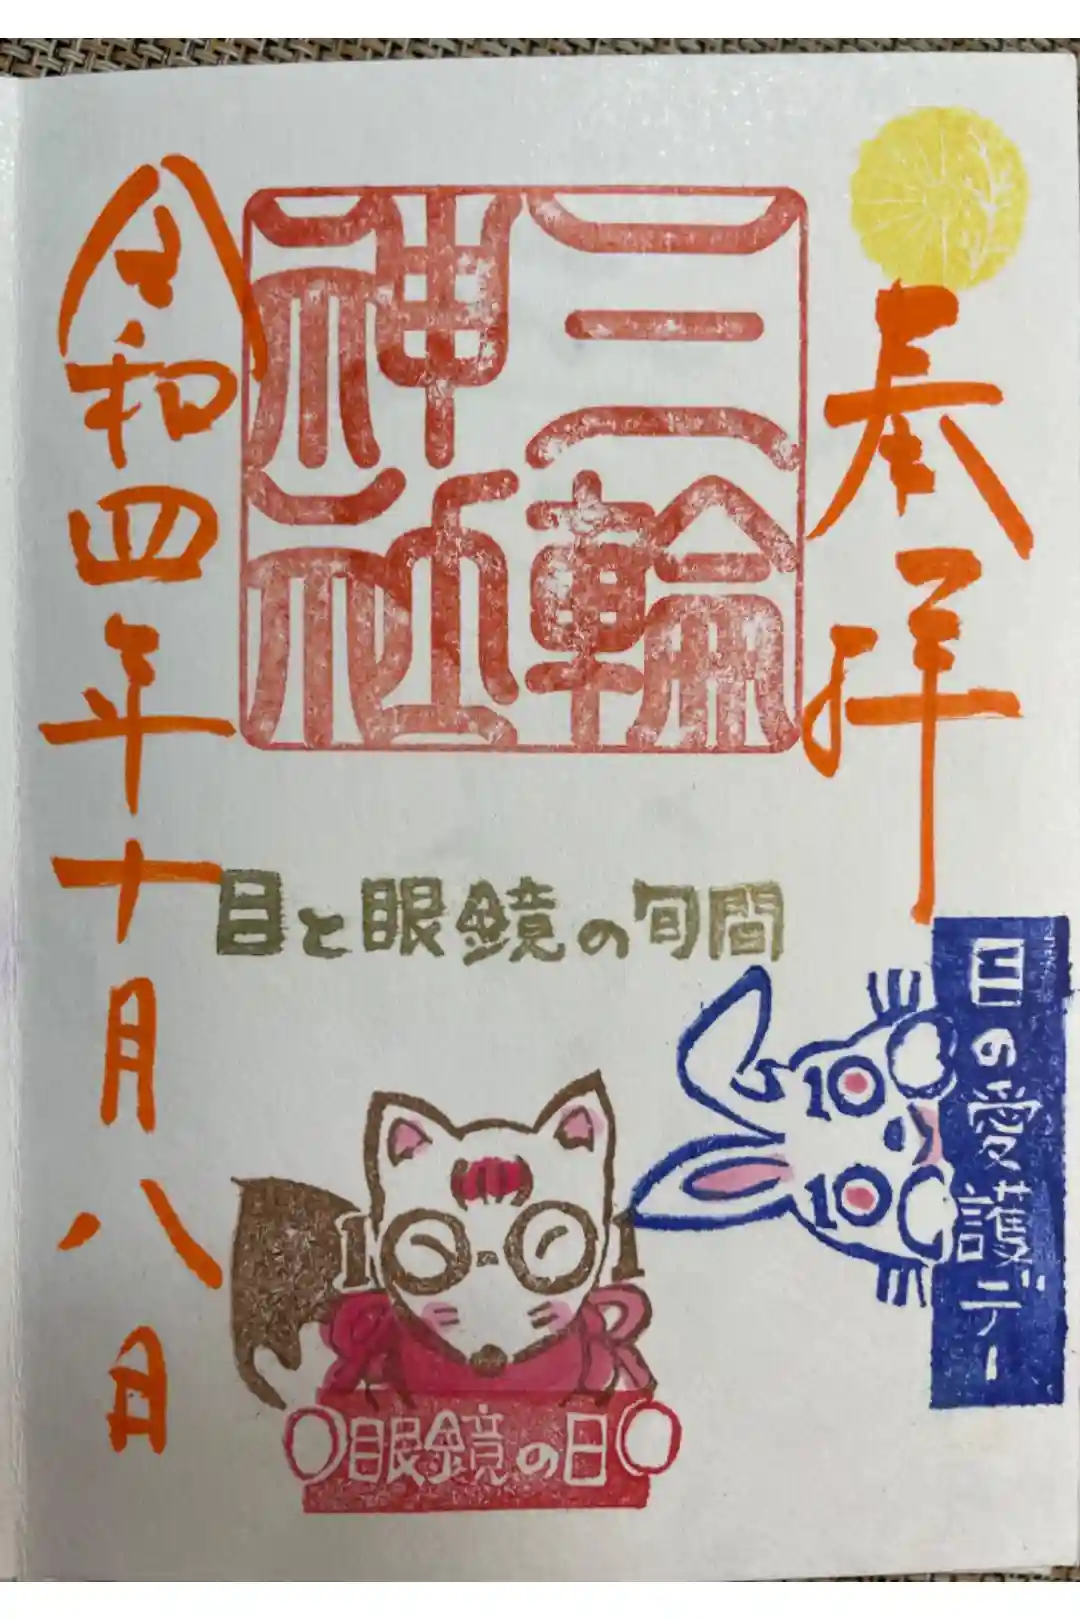 奉拝
三輪神社
令和四年十月八日
目と眼鏡の旬間
目の愛護デー
10
10
1
1
眼鏡の日